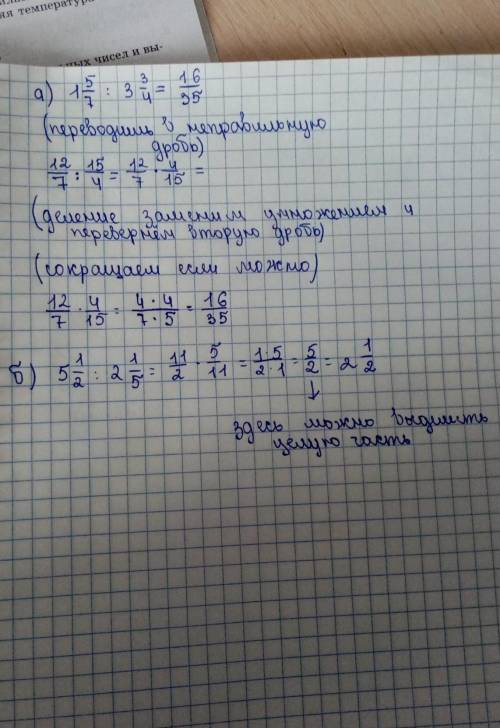 яя температура
ных чисел и вы-
а) 1 5/7 : 3 3/4 = 16/35
(переводишь в неправильную
дробь)
12/7 : 15/4 = 12/7 · 4/15 =
(деление заменим умножением и
перевернём вторую дробь)
(сокращаем если можно)
12/7 · 4/15 = 4·4/7·5 = 16/35
б) 5 1/2 : 2 1/5 = 11/2 · 5/11 = 1·5/2·1 = 5/2 = 2 1/2
↓
здесь можно выделить
целую часть